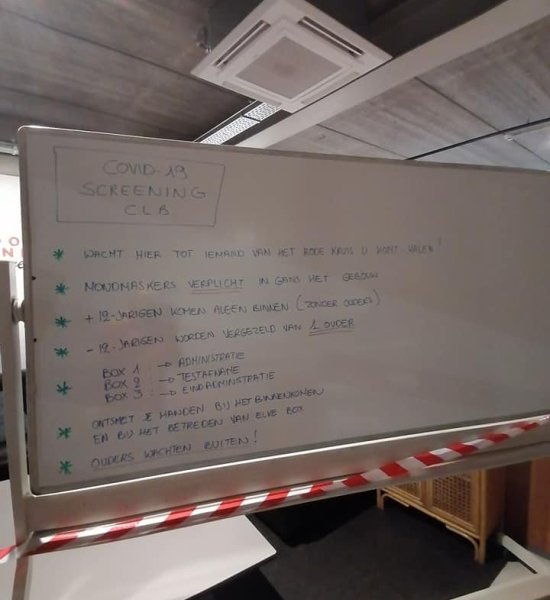 COVID-19
SCREENING
CLB
* WACHT HIER TOT IEMAND VAN HET RODE KRUIS U KOMT HALEN!
* MONDMASKERS VERPLICHT IN GANS HET GEBOUW
* +12-JARIGEN KOMEN ALEEN BINNEN (ZONDER OUDERS)
* -12-JARIGEN WORDEN VERGEZELD VAN 1 OUDER
* BOX 1 : → ADMINISTRATIE
BOX 2 : → TESTAFNAME
BOX 3 : → EINDADMINISTRATIE
* ONTSMET JE HANDEN BIJ HET BINNENKOMEN
EN BIJ HET BETREDEN VAN ELKE BOX
* OUDERS WACHTEN BUITEN!